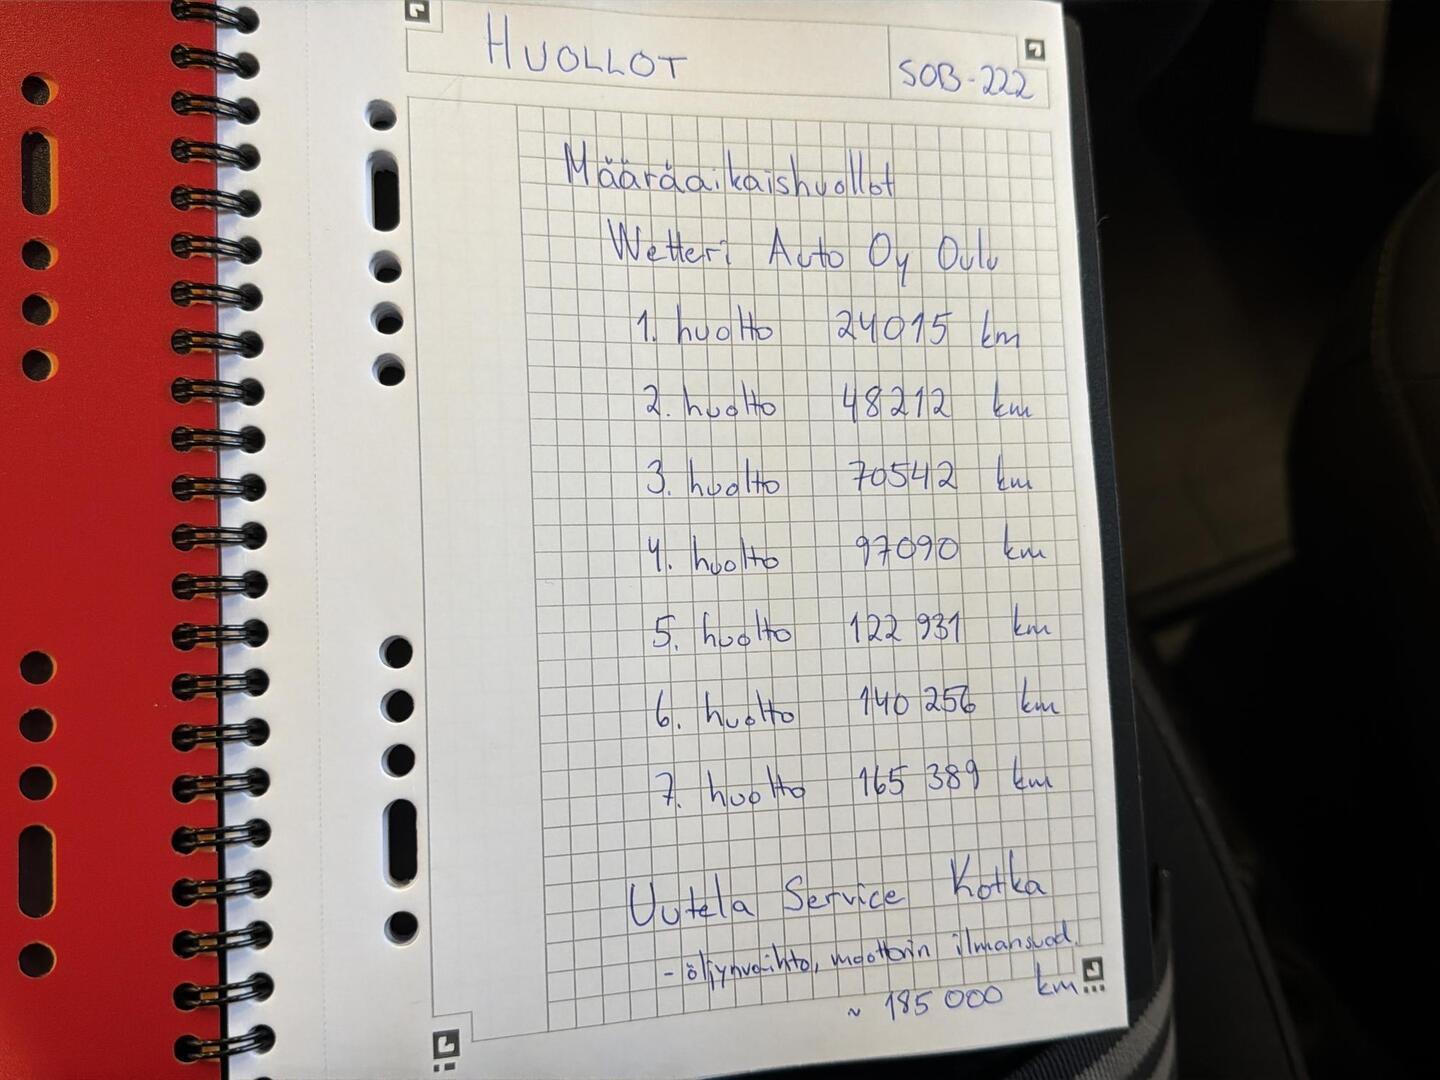 HUOLLOT
SOB-222
Määräaikaishuollot
Wetteri Auto Oy Oulu
1. huolto 24015 km
2. huolto 48212 km
3. huolto 70542 km
4. huolto 97090 km
5. huolto 122 931 km
6. huolto 140 256 km
7. huolto 165 389 km
Uutela Service Kotka
- öljynvaihto, moottorin ilmansuod.
~ 185 000 km